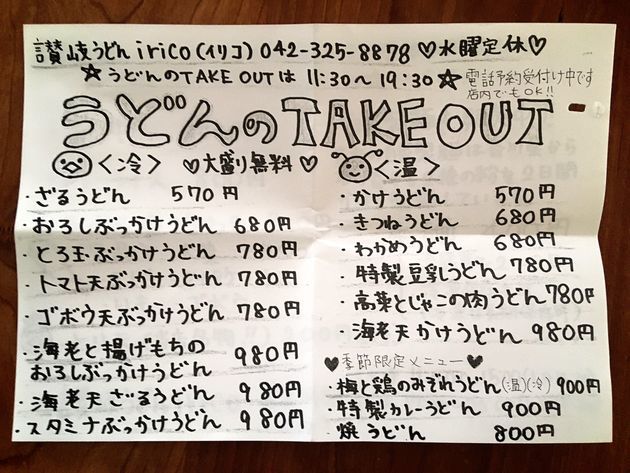 讃岐うどん irico(イリコ) 042-325-8878 ♡水曜定休♡
☆うどんのTAKE OUTは 11:30〜19:30☆
電話予約受付け中です
店内でもOK!!
うどんのTAKE OUT
〈冷〉 ♡大盛り無料♡
・ざるうどん 570円
・おろしぶっかけうどん 680円
・とろ玉ぶっかけうどん 780円
・トマト天ぶっかけうどん 780円
・ゴボウ天ぶっかけうどん 780円
・海老と揚げもちの
おろしぶっかけうどん 980円
・海老天ざるうどん 980円
・スタミナぶっかけうどん 980円
〈温〉
・かけうどん 570円
・きつねうどん 680円
・わかめうどん 680円
・特製豆乳うどん 780円
・高菜とじゃこの肉うどん 780円
・海老天かけうどん 980円
♥季節限定メニュー♥
・梅と鶏のみぞれうどん(温)(冷) 900円
・特製カレーうどん 900円
・焼うどん 800円